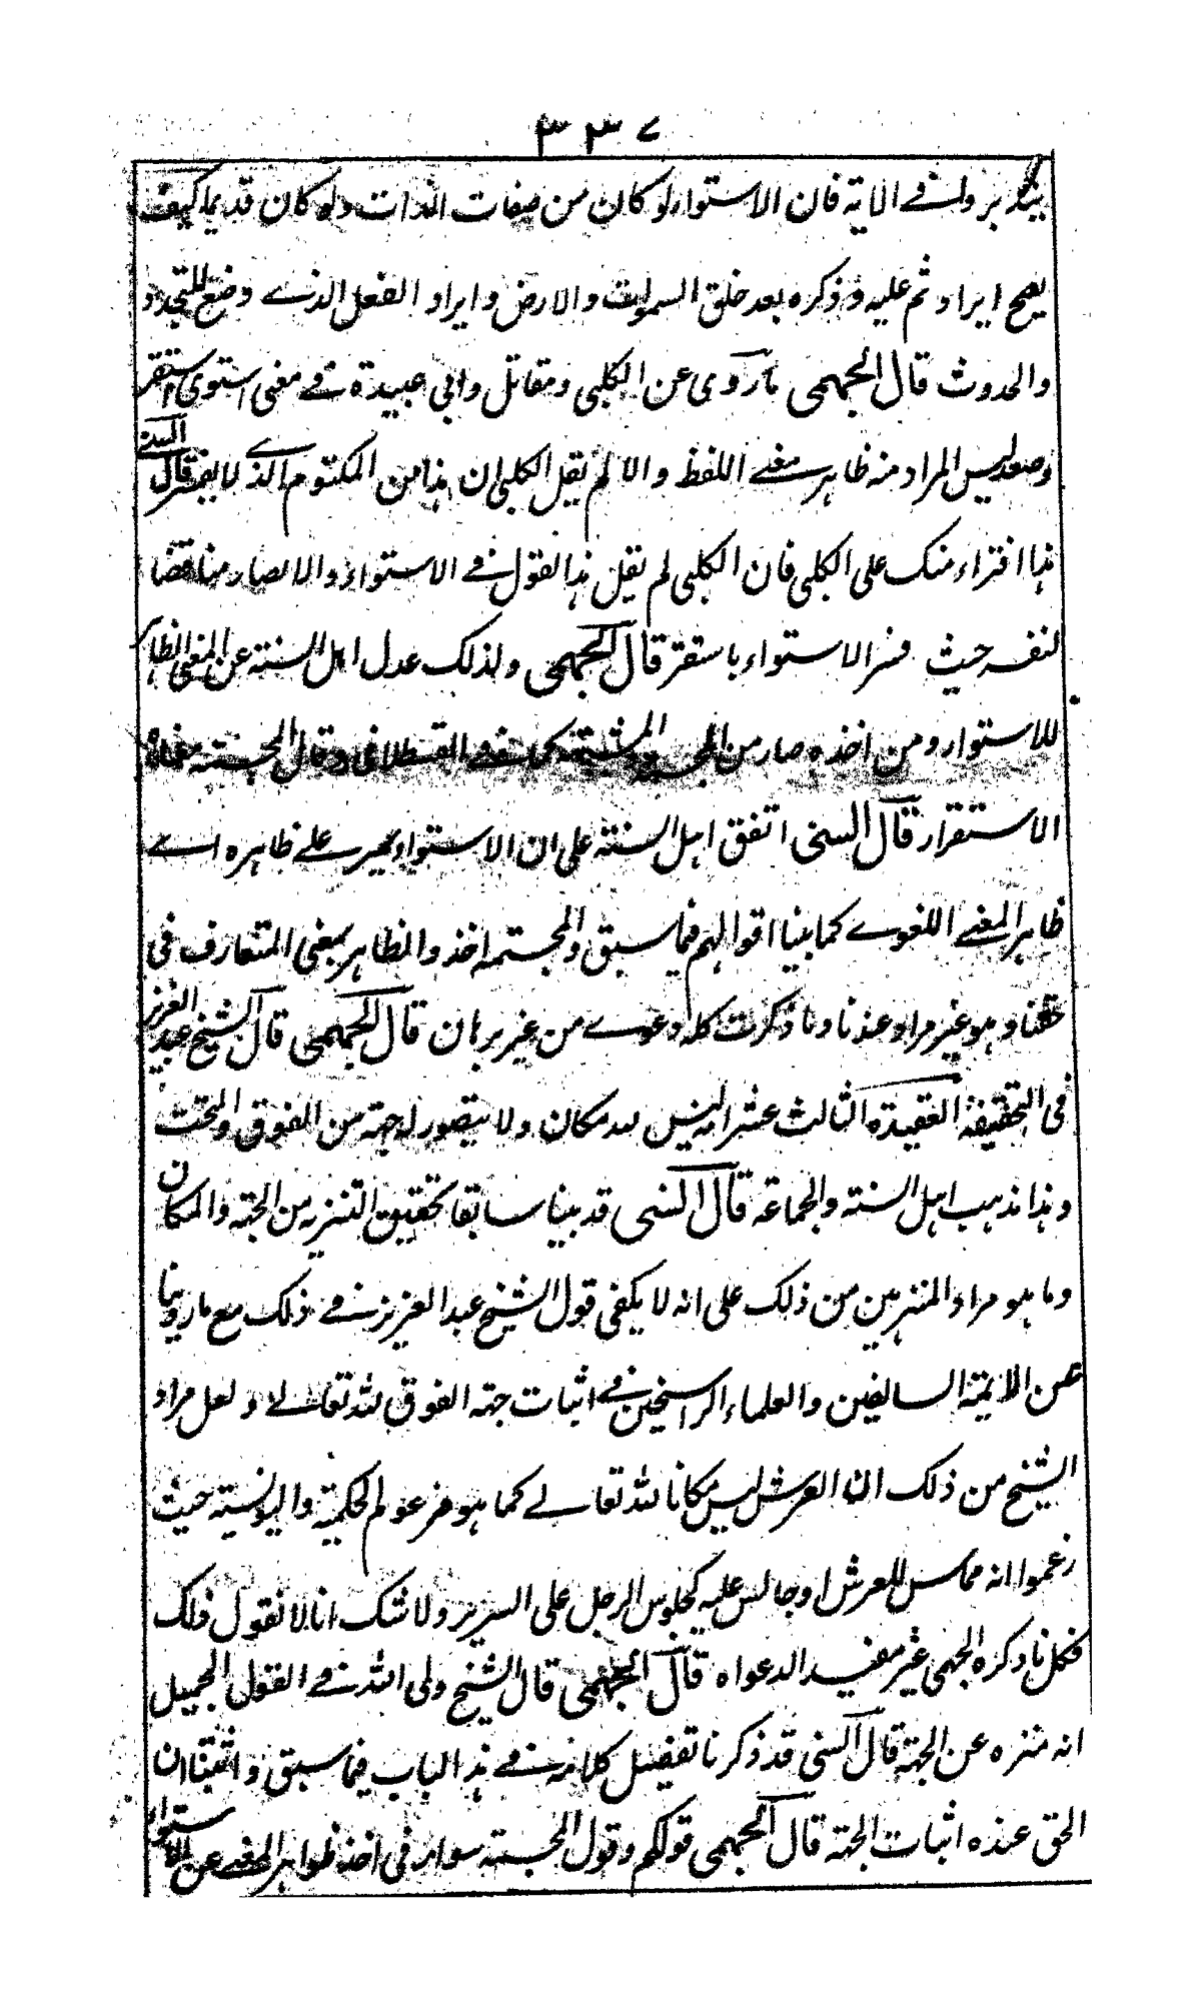 ٣٣٧
في الآية فان الاستواء لو كان من صفات الذات ولو كان قديما كيف
يصح ايراد ثم عليه وذكره بعد خلق السموات والارض وايراد الفعل الذي وضع للتجدد
والحدوث قال الجهمي ما روى عن الكلبي ومقاتل وابي عبيدة في معنى استوى استقر
وصعد ليس المراد منه ظاهر معنى اللفظ والا لم يقل الكلبي ان هذا من المكتوم الذي لا يفسر قال السني
هذا افتراء منك على الكلبي فان الكلبي لم يقل هذا القول في الاستواء والا لصار مناقضا
لنفسه حيث فسر الاستواء باستقر قال الجهمي ولذلك عدل اهل السنة عن المعنى الظاهر
للاستواء ومن اخذه صار من المجسمة والمشبهة كما في القسطلاني وقال المجسمة معناه
الاستقرار قال السني اتفق اهل السنة على ان الاستواء يجري على ظاهره اي
ظاهر المعنى اللغوي كما بينا اقوالهم فيما سبق والمجسمة اخذوا الظاهر بمعنى المتعارف في
وهو غير مراد عندنا وما ذكرت كله دعوى من غير برهان قال الجهمي قال الشيخ عبد العزيز
في التحفة العقيدة الثالث عشر انه ليس له مكان ولا يتصور له جهة من الفوق والتحت
وهذا مذهب اهل السنة والجماعة قال السني قد بينا سابقا تحقيق التنزيه من الجهة والمكان
وما هو مراد المنزهين من ذلك على انه لا يكفي قول الشيخ عبد العزيز في ذلك مع ما روينا
عن الائمة السالفين والعلماء الراسخين في اثبات جهة الفوق لله تعالى ولعل مراد
الشيخ من ذلك ان العرش ليس مكانا لله تعالى كما هو مزعوم الحكمية واليونسية حيث
زعموا انه مماس للعرش او جالس عليه كجلوس الرجل على السرير ولا شك انا لا نقول ذلك
فكل ما ذكره الجهمي غير مفيد لدعواه قال الجهمي قال الشيخ ولي الله في القول الجميل
انه منزه عن الجهة قال السني قد ذكرنا تفصيل كلامه في هذا الباب فيما سبق واثبتنا ان
الحق عنده اثبات الجهة قال الجهمي قولكم وقول المجسمة سواء في اخذ ظواهر المعنى عن الاستواء